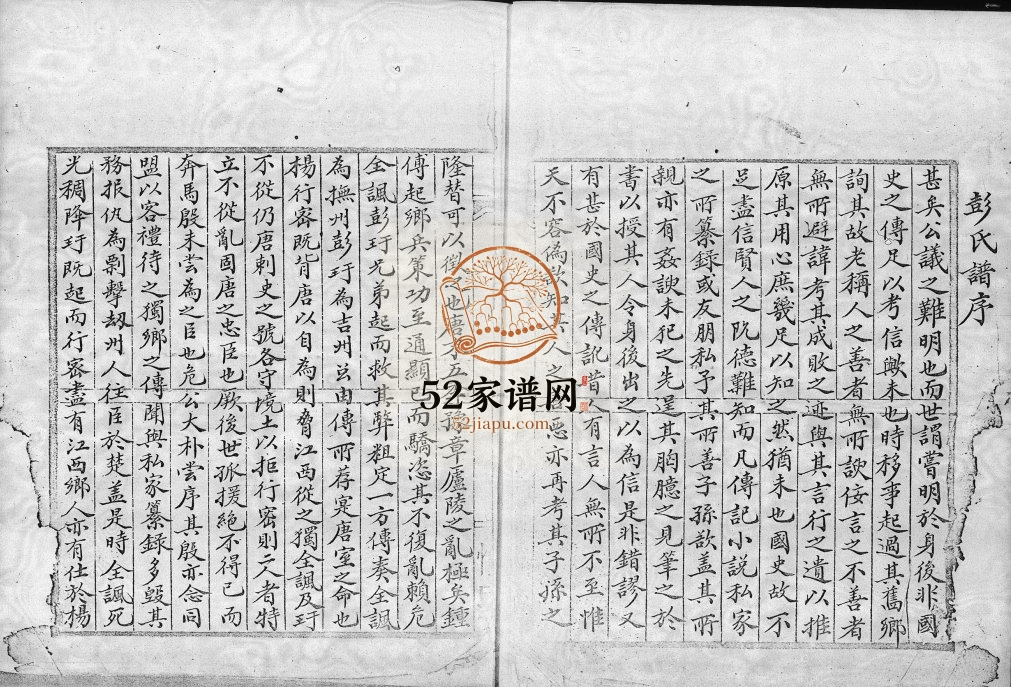 彭氏譜序
甚矣公議之難明也而世謂嘗明於身後非國
史之傳足以考信歟未也時移事起過其舊鄉
詢其故老稱人之善者無所諛佞言之不善者
無所避諱考其成敗之迹與其言行之遺以推
原其用心庶幾足以知之然猶未也國史故不
足盡信賢人之阨德難知而凡傳記小説私家
之所纂録或友朋私予其所善子孫欲盖其所
親亦有姦諛未死之先逞其胸臆之見筆之於
書以授其人令身後出之以為信是非錯謬又
有甚於國史之傳訛昔人有言人無所不至惟
天不容偽欲知其人之惡亦再考其子孫之
隆替可以之也唐季五豫章廬陵之亂極矣鍾
傳起鄉兵策功至通顯已而驕恣其不復亂賴危
全諷彭玕兄弟起而救其弊粗定一方傳奏全諷
為撫州彭玕為吉州豈由傳所荐寔唐室之命也
楊行密既背唐以自為則脅江西從之獨全諷及玕
不從仍唐刺史之號各守境土以拒行密則二人者特
立不從亂固唐之忠臣也厥後世孤援絕不得已而
奔馬殷未嘗為之臣也危公大朴嘗序其殷亦念同
盟以客禮待之獨鄉之傳聞與私家纂録多毀其
務振仇為剽擊刼州人徃臣於楚盖是時全諷死
光稠降玕既起而行密盡有江西鄉人亦有仕於楊
52家谱网
52jiapu.com